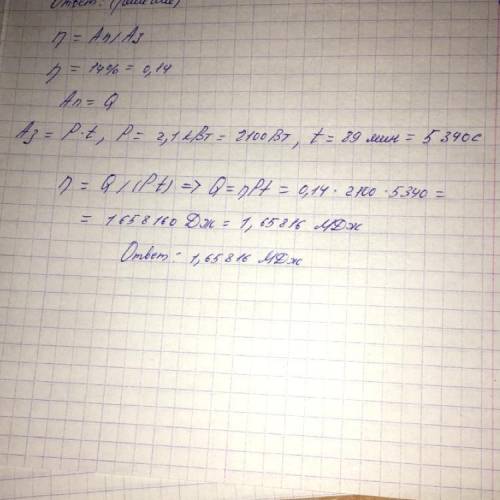 Ответ: (решение)
η = Aп/Aз
η = 14% = 0,14
Aп = Q
Aз = P·t, P = 2,1 кВт = 2100 Вт, t = 89 мин = 5340 с
η = Q/(Pt) => Q = ηPt = 0,14 · 2100 · 5340 =
= 1658160 Дж = 1,65816 МДж
Ответ: 1,65816 МДж